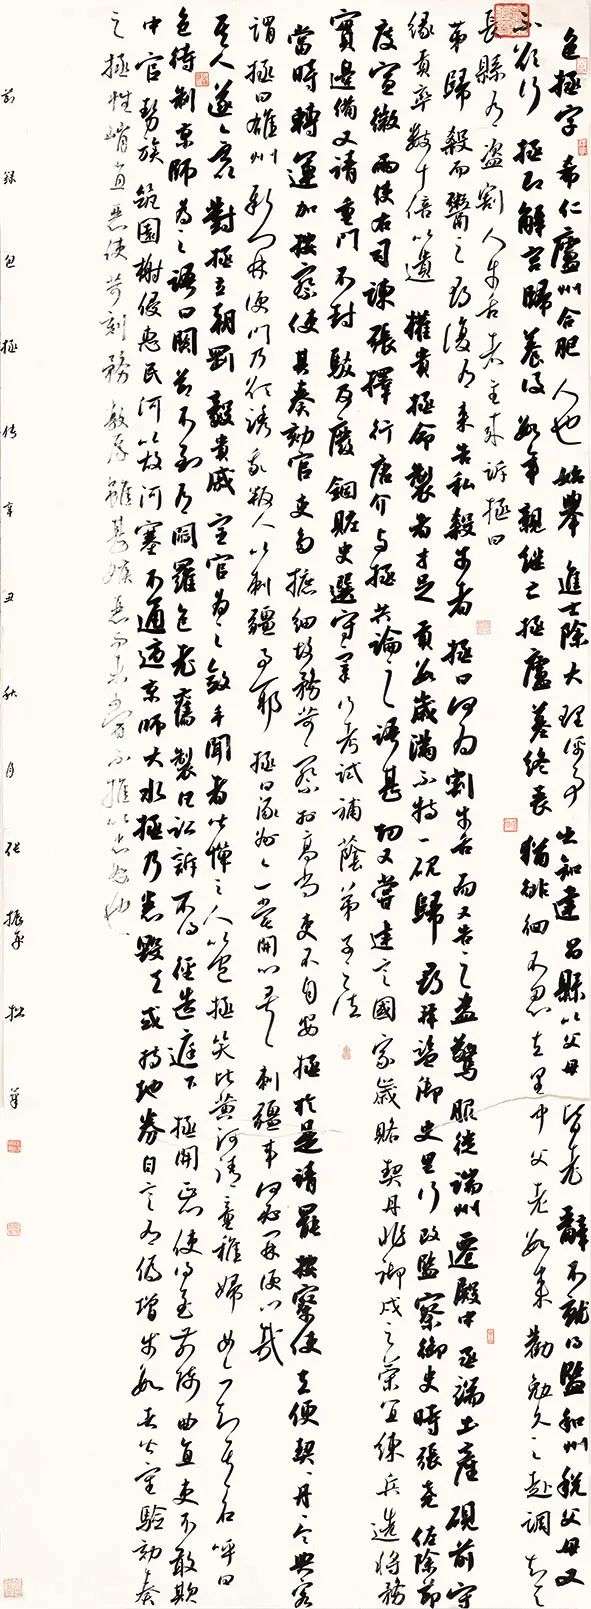 包拯字希仁廬州合肥人也始舉進士除大理評事出知建昌縣以父母皆老辭不就得監和州稅父母又
不欲行拯即解官歸養後數年親繼亡拯廬墓終喪猶徘徊不忍去里中父老數來勸勉久之赴調知天
長縣有盜割人牛舌者主來訴拯曰
第歸殺而鬻之尋復有來告私殺牛者拯曰何為割牛舌而又告之盜驚服徙端州遷殿中丞端土產硯前守
緣貢率數十倍以遺權貴拯命製者才足貢數歲滿不持一硯歸尋拜監御史里行改監察御史時張堯佐除節
度宣徽兩使右司諫張擇行唐介與拯共論之語甚切又嘗建言國家歲賂契丹非御戎之策宜練兵選將務
實邊備又請重門下封駁及廢錮贓吏選守宰行考試補蔭弟子之法
當時轉運加按察使其奏劾官吏多摭細故務苛察相高尚吏不自安拯於是請罷按察使去使契丹令典客
謂拯曰雄州新開便門乃欲誘我叛人以刺疆事耶拯曰涿州亦嘗開門矣刺疆事何必開便門哉
其人遂無以對拯立朝剛毅貴戚宦官為之斂手聞者皆憚之人以包拯笑比黃河清童稚婦女亦知其名呼曰
包待制京師為之語曰關節不到有閻羅包老舊製凡訟訴不得徑造庭下拯開正門使得至前陳曲直吏不敢欺
中官勢族築園榭侵惠民河以故河塞不通適京師大水拯乃悉毀去或持地券自言有偽增步數者皆審驗劾奏
之拯性峭直惡吏苛刻務敦厚雖甚嫉惡而未嘗不推以忠恕也
錄包拯傳辛丑秋月張振華拙筆